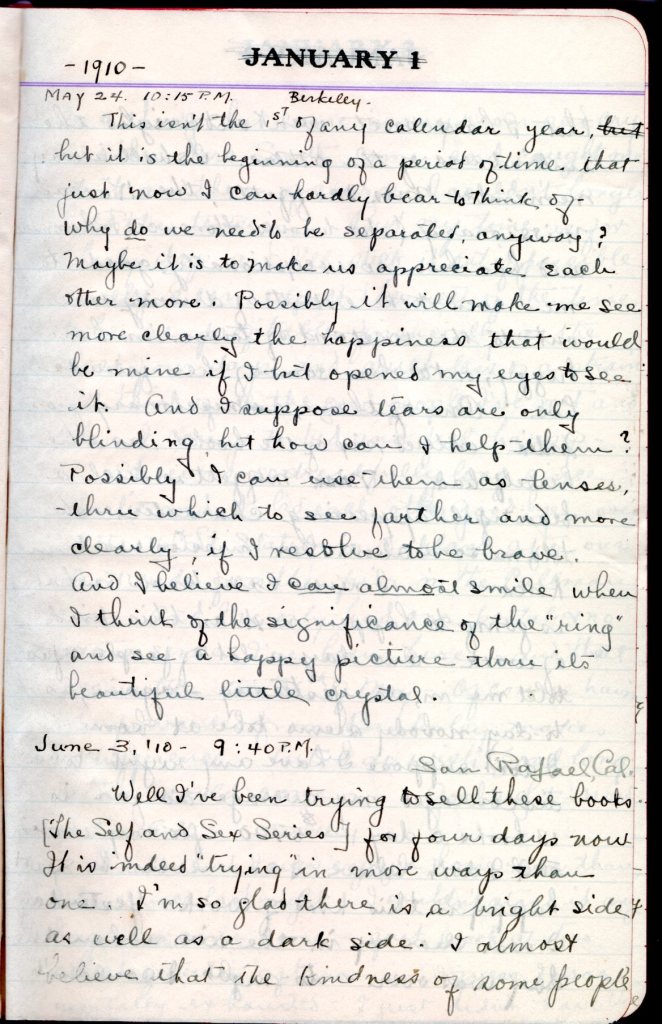 -1910- JANUARY 1
May 24. 10:15 P.M. Berkeley.
This isn't the 1st of any calendar year, but
but it is the beginning of a period of time that
just now I can hardly bear to think of-
Why do we need to be separated, anyway?
Maybe it is to make us appreciate each
other more. Possibly it will make me see
more clearly the happiness that would
be mine if I but opened my eyes to see
it. And I suppose tears are only
blinding, but how can I help them?
Possibly I can use them as lenses,
thru which to see farther and more
clearly, if I resolve to be brave.
And I believe I can almost smile when
I think of the significance of the "ring"
and see a happy picture thru its
beautiful little crystal.
June 3, '10 - 9:40 P.M.
San Rafael, Cal.
Well I've been trying to sell these books
[The Self and Sex Series] for four days now
It is indeed "trying" in more ways than
one. I'm so glad there is a bright side
as well as a dark side. I almost
believe that the kindness of some people